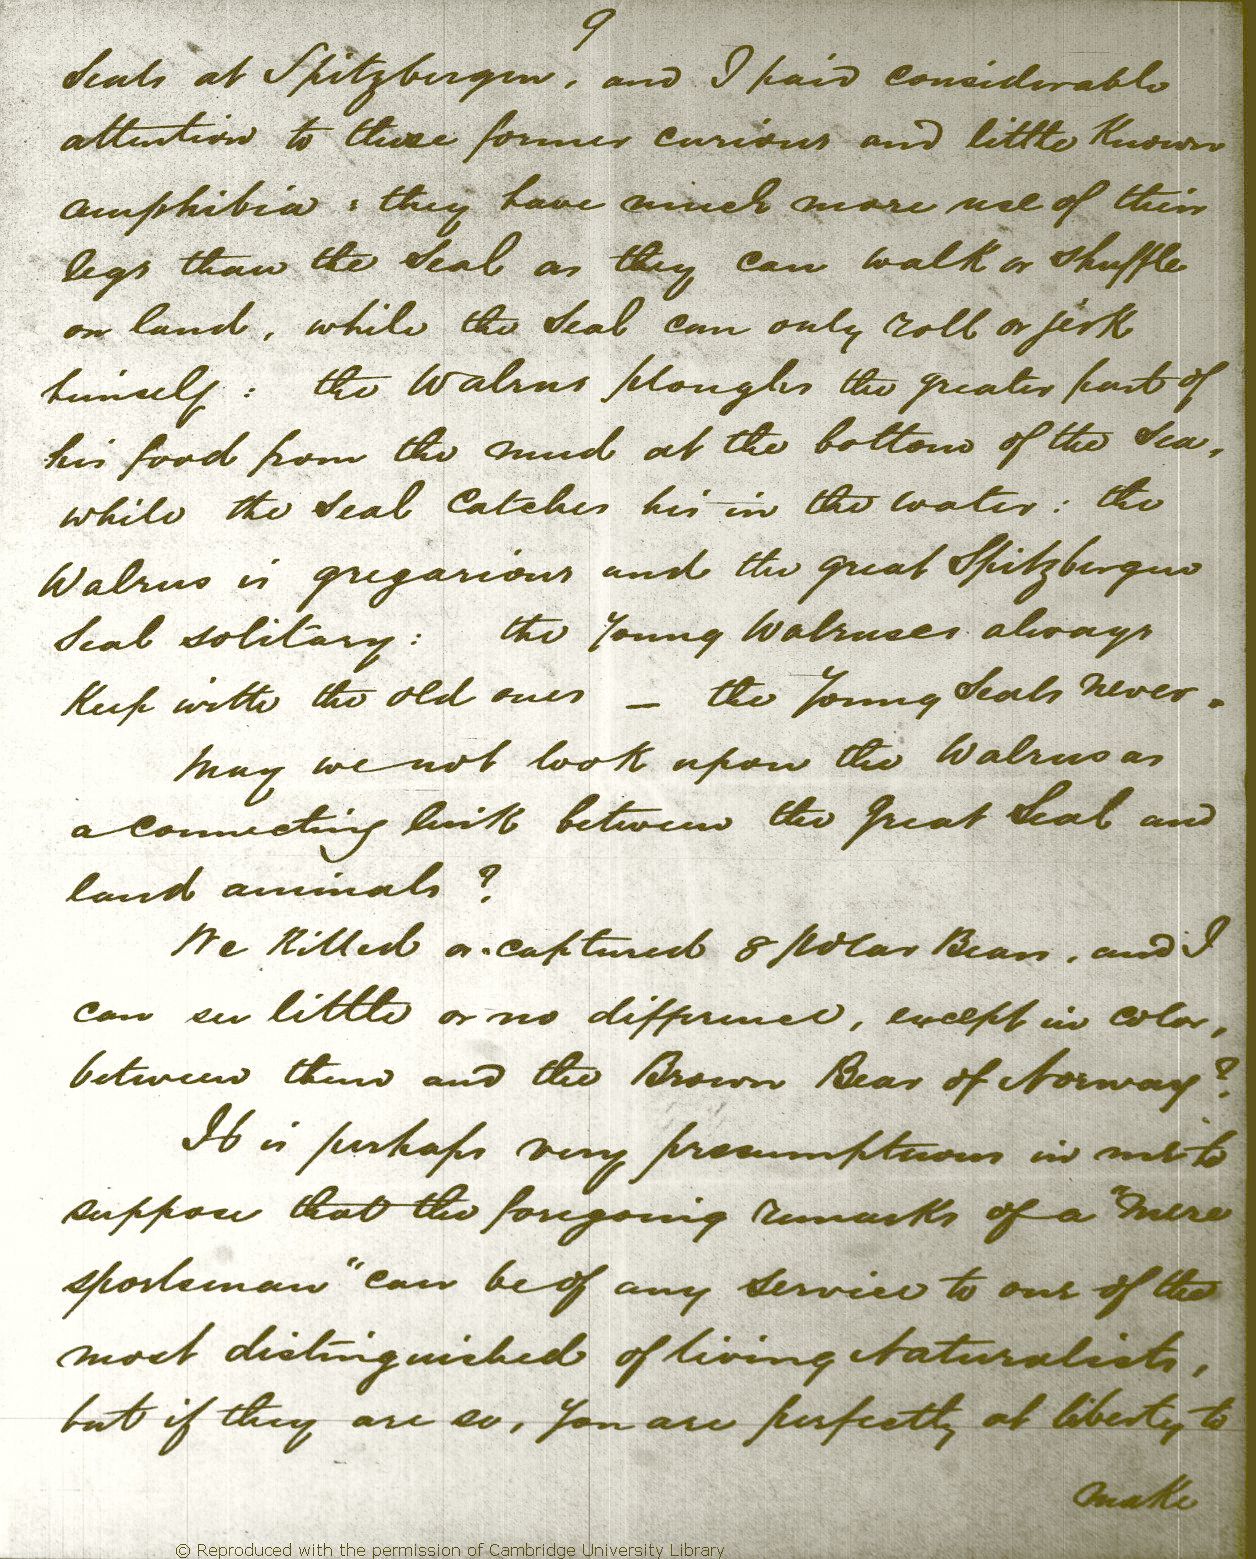 9
Seals at Spitzbergen, and I paid considerable
attention to these former curious and little known
amphibia : they have much more use of their
legs than the Seal as they can walk or shuffle
on land, while the Seal can only roll or jerk
himself : the Walrus ploughs the greater part of
his food from the mud at the bottom of the Sea,
while the Seal catches his in the water : the
Walrus is gregarious and the great Spitzbergen
Seal solitary : the young Walruses always
keep with the old ones — the young Seals never.
May we not look upon the Walrus as
a connecting link between the great Seal and
land animals ?
We killed or captured 8 Polar Bears, and I
can see little or no difference, except in color,
between them and the Brown Bear of Norway ?
It is perhaps very presumptuous in me to
suppose that the foregoing remarks of a "mere
sportsman" can be of any service to one of the
most distinguished of living Naturalists,
but if they are so, you are perfectly at liberty to
make
© Reproduced with the permission of Cambridge University Library